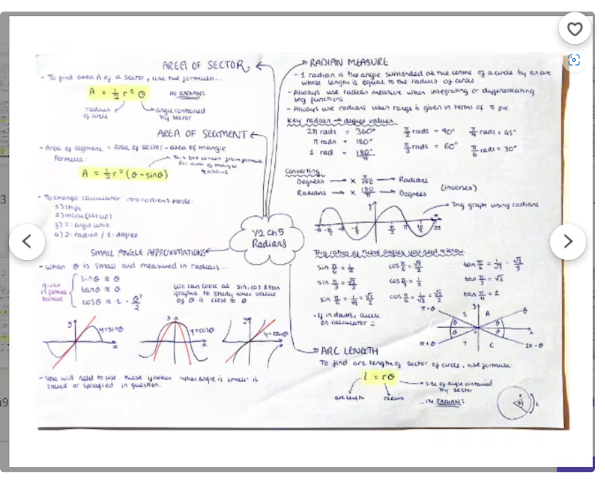 AREA OF SECTOR
- To find area A of a sector, use the formula...
A = ½ r² θ
IN RADIANS
radius of circle
angle contained by sector
AREA OF SEGMENT
- Area of segment = area of sector - area of triangle
Formula:
A = ½ r² (θ - sinθ)
- To change calculator into radians mode:
1) shift
2) menu (set up)
3) 2: angle unit
4) 2: radian / 1: degree
SMALL ANGLE APPROXIMATIONS
- When θ is small and measured in radians...
given in formula booklet
sinθ ≈ θ
tanθ ≈ θ
cosθ ≈ 1 - θ²/2
We can look at sin, cos & tan
graphs to
y=sinθ
y=cosθ
y=tanθ
- You will need to use these when 'angle is small' is
stated or specified in question.
Y2 Ch5
Radians
RADIAN MEASURE
- 1 radian is the angle subtended at the centre of a circle by an arc
whose length is equal to the radius of circle.
- Always use radian measure when integrating or differentiating
trig functions
- Always use radians when range is given in terms of π
Key radian → degree values:
2π rads = 360°
π rads = 180°
1 rad = 180°/π
π/2 rads = 90°
π/3 rads = 60°
π/4 rads = 45°
π/6 rads = 30°
Converting
Degrees → × π/180 → Radians
Radians → × 180/π → Degrees
(inverses)
Trig graph using radians
The ratios of these angles you need to know:
sin π/6 = 1/2
cos π/6 = √3/2
tan π/6 = 1/√3 = √3/3
sin π/3 = √3/2
cos π/3 = 1/2
tan π/3 = √3
sin π/4 = 1/√2 = √2/2
cos π/4 = 1/√2 = √2/2
tan π/4 = 1
- If in doubt, check
by calculator
π-θ
S
A
T
C
π+θ
2π-θ
ARC LENGTH
To find arc length of sector of circle, use formula:
l = rθ
arc length
radius
size of angle contained
by sector
...IN RADIANS